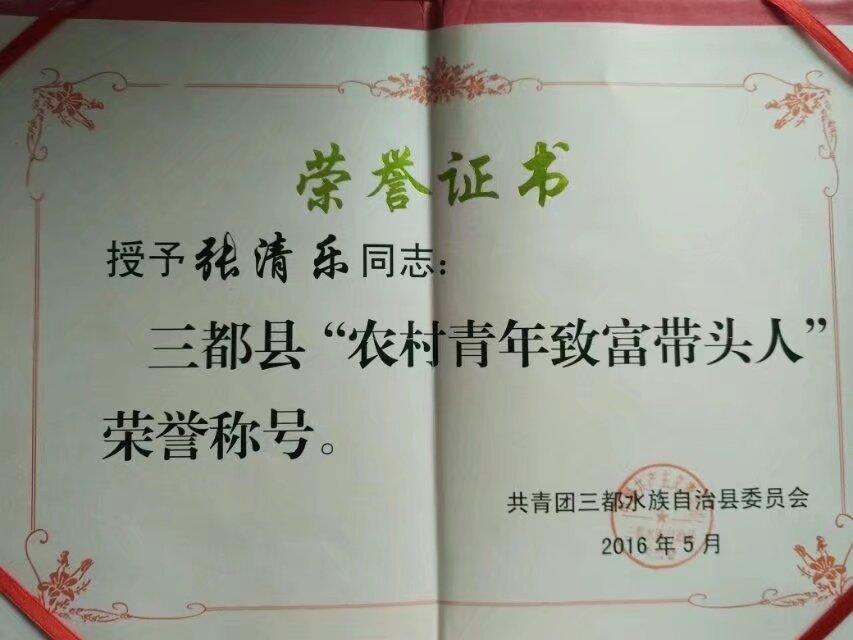 荣誉证书
授予张清乐同志：
三都县“农村青年致富带头人”
荣誉称号。
共青团三都水族自治县委员会
2016年5月